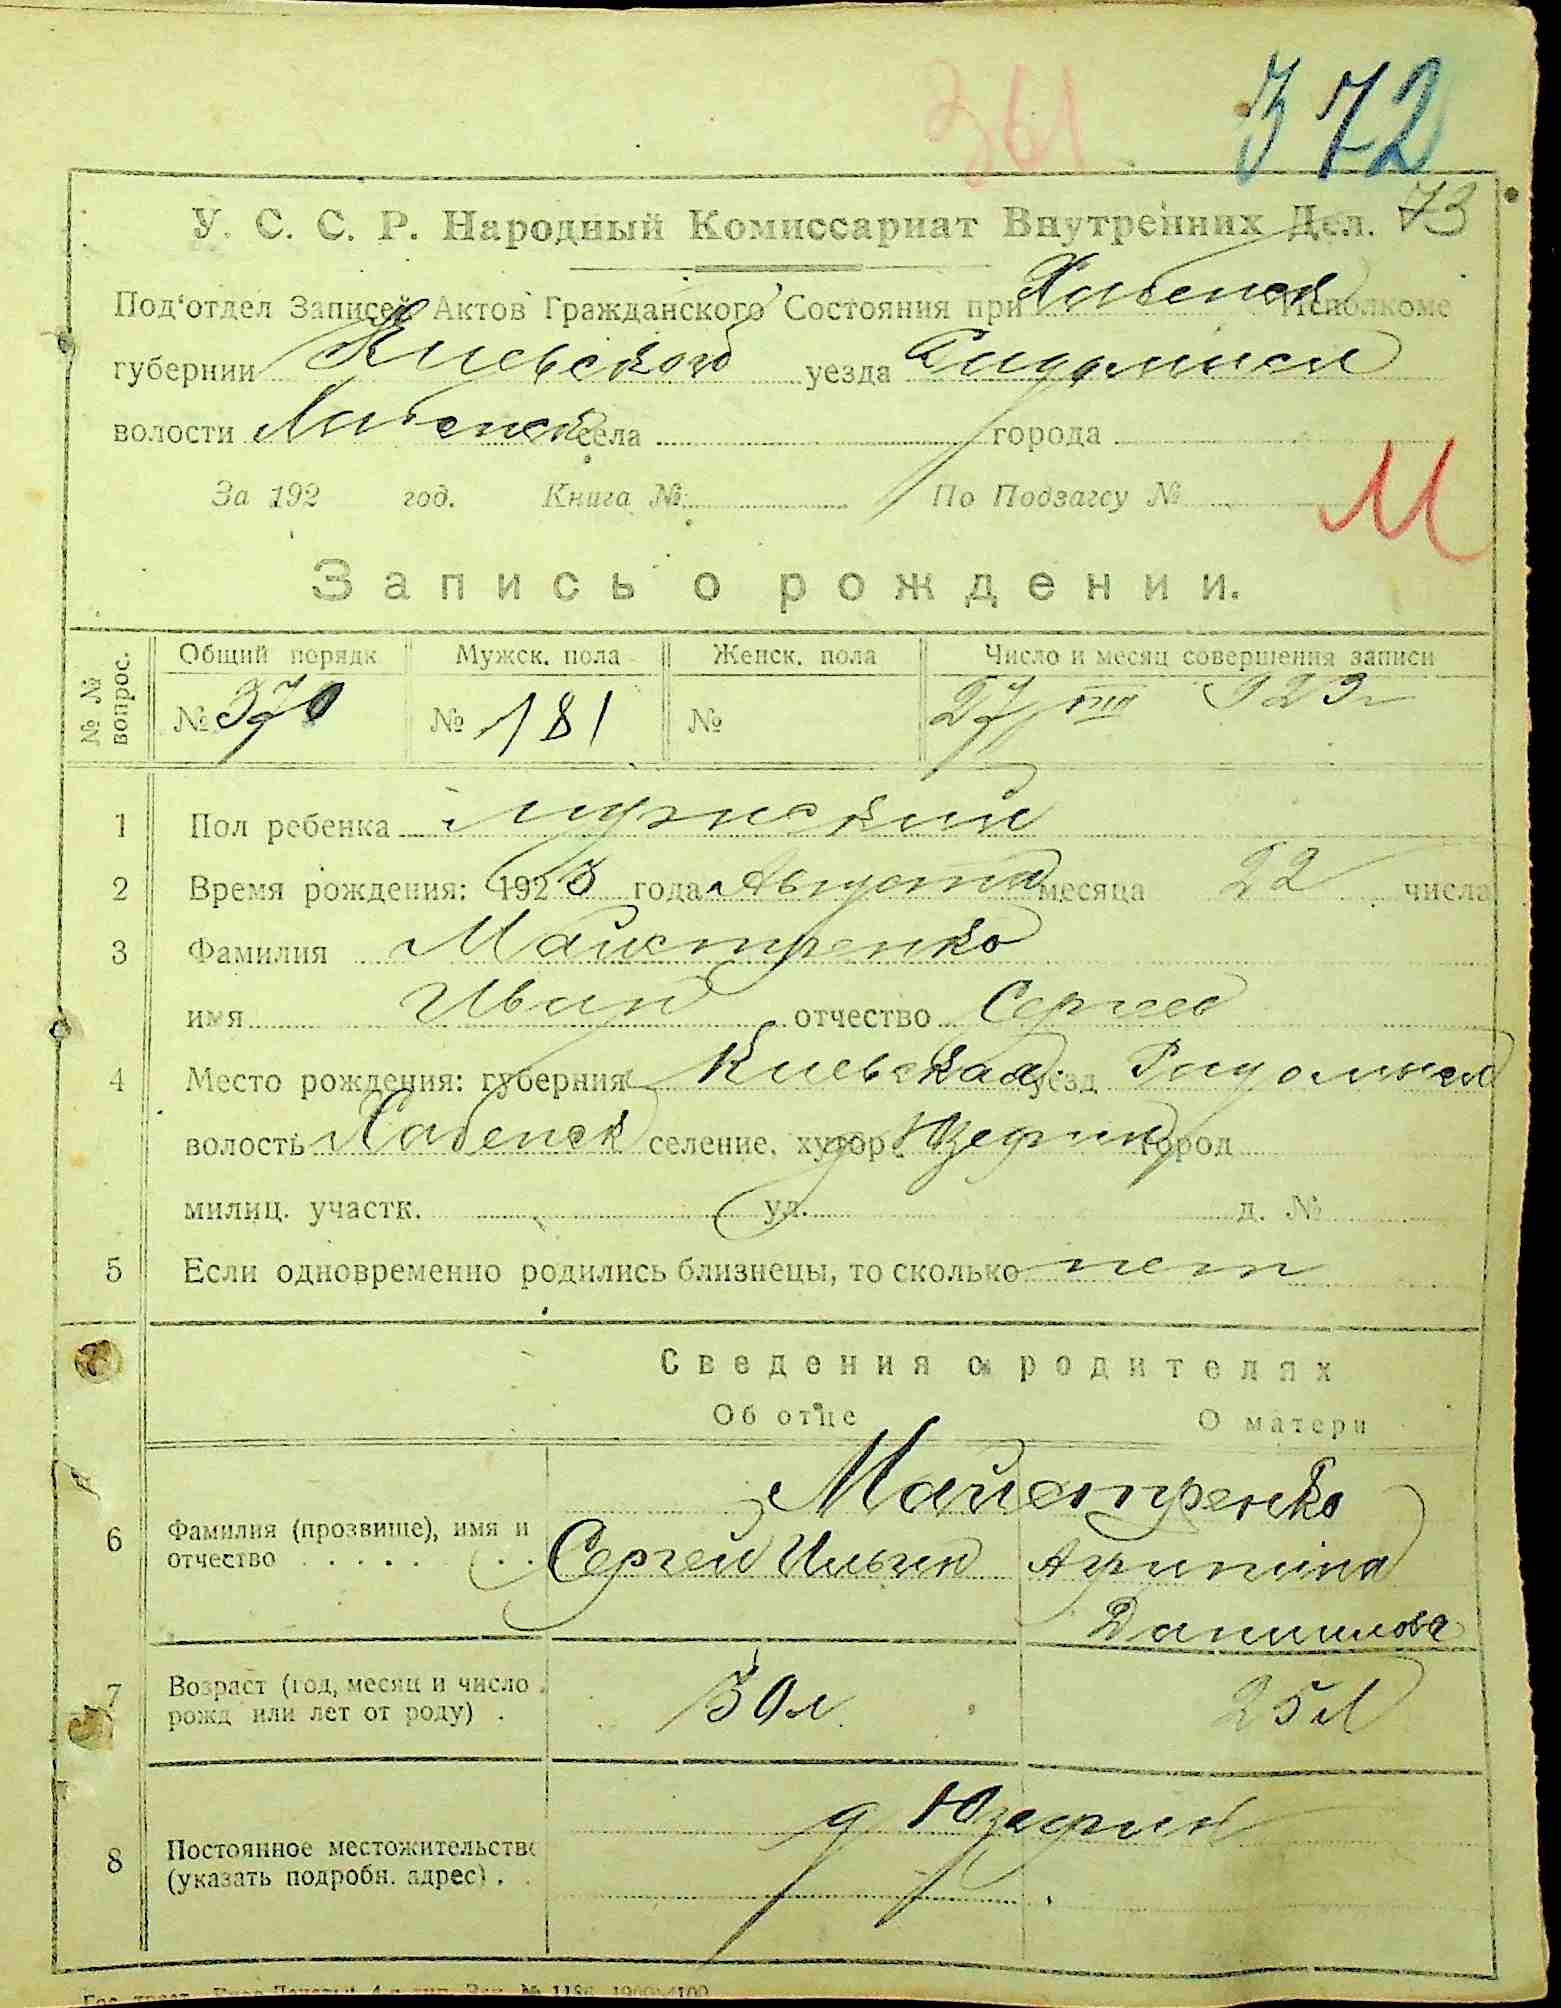 361 372
У. С. С. Р. Народный Комиссариат Внутренних Дел. 73
Под‘отдел Записей Актов Гражданского Состояния при Хабенск Исполкоме
губернии Киевской уезда Радомысл
волости Хабенск села города
За 192 год. Книга № По Подзагсу №
М
Запись о рождении.
№ № вопрос. Общий порядк Мужск. пола Женск. пола Число и месяц совершения записи
№ 370 № 181 № 27/VIII 923г
1 Пол ребенка мужский
2 Время рождения: 1923 года Августа месяца 22 числа
3 Фамилия Майстренко
имя Иван отчество Сергеев
4 Место рождения: губерния Киевская уезд Радомысл
волость Хабенск селение, хутор город
милиц. участк. ул. д. №
5 Если одновременно родились близнецы, то сколько нет
Сведения о родителях
Об отце О матери
Майстренко
6 Фамилия (прозвище), имя и
отчество . . . . . . Сергей Ильин Агрипина
Данилова
7 Возраст (год, месяц и число
рожд или лет от роду) . 30л 25л
8 Постоянное местожительство
(указать подробн. адрес) . д